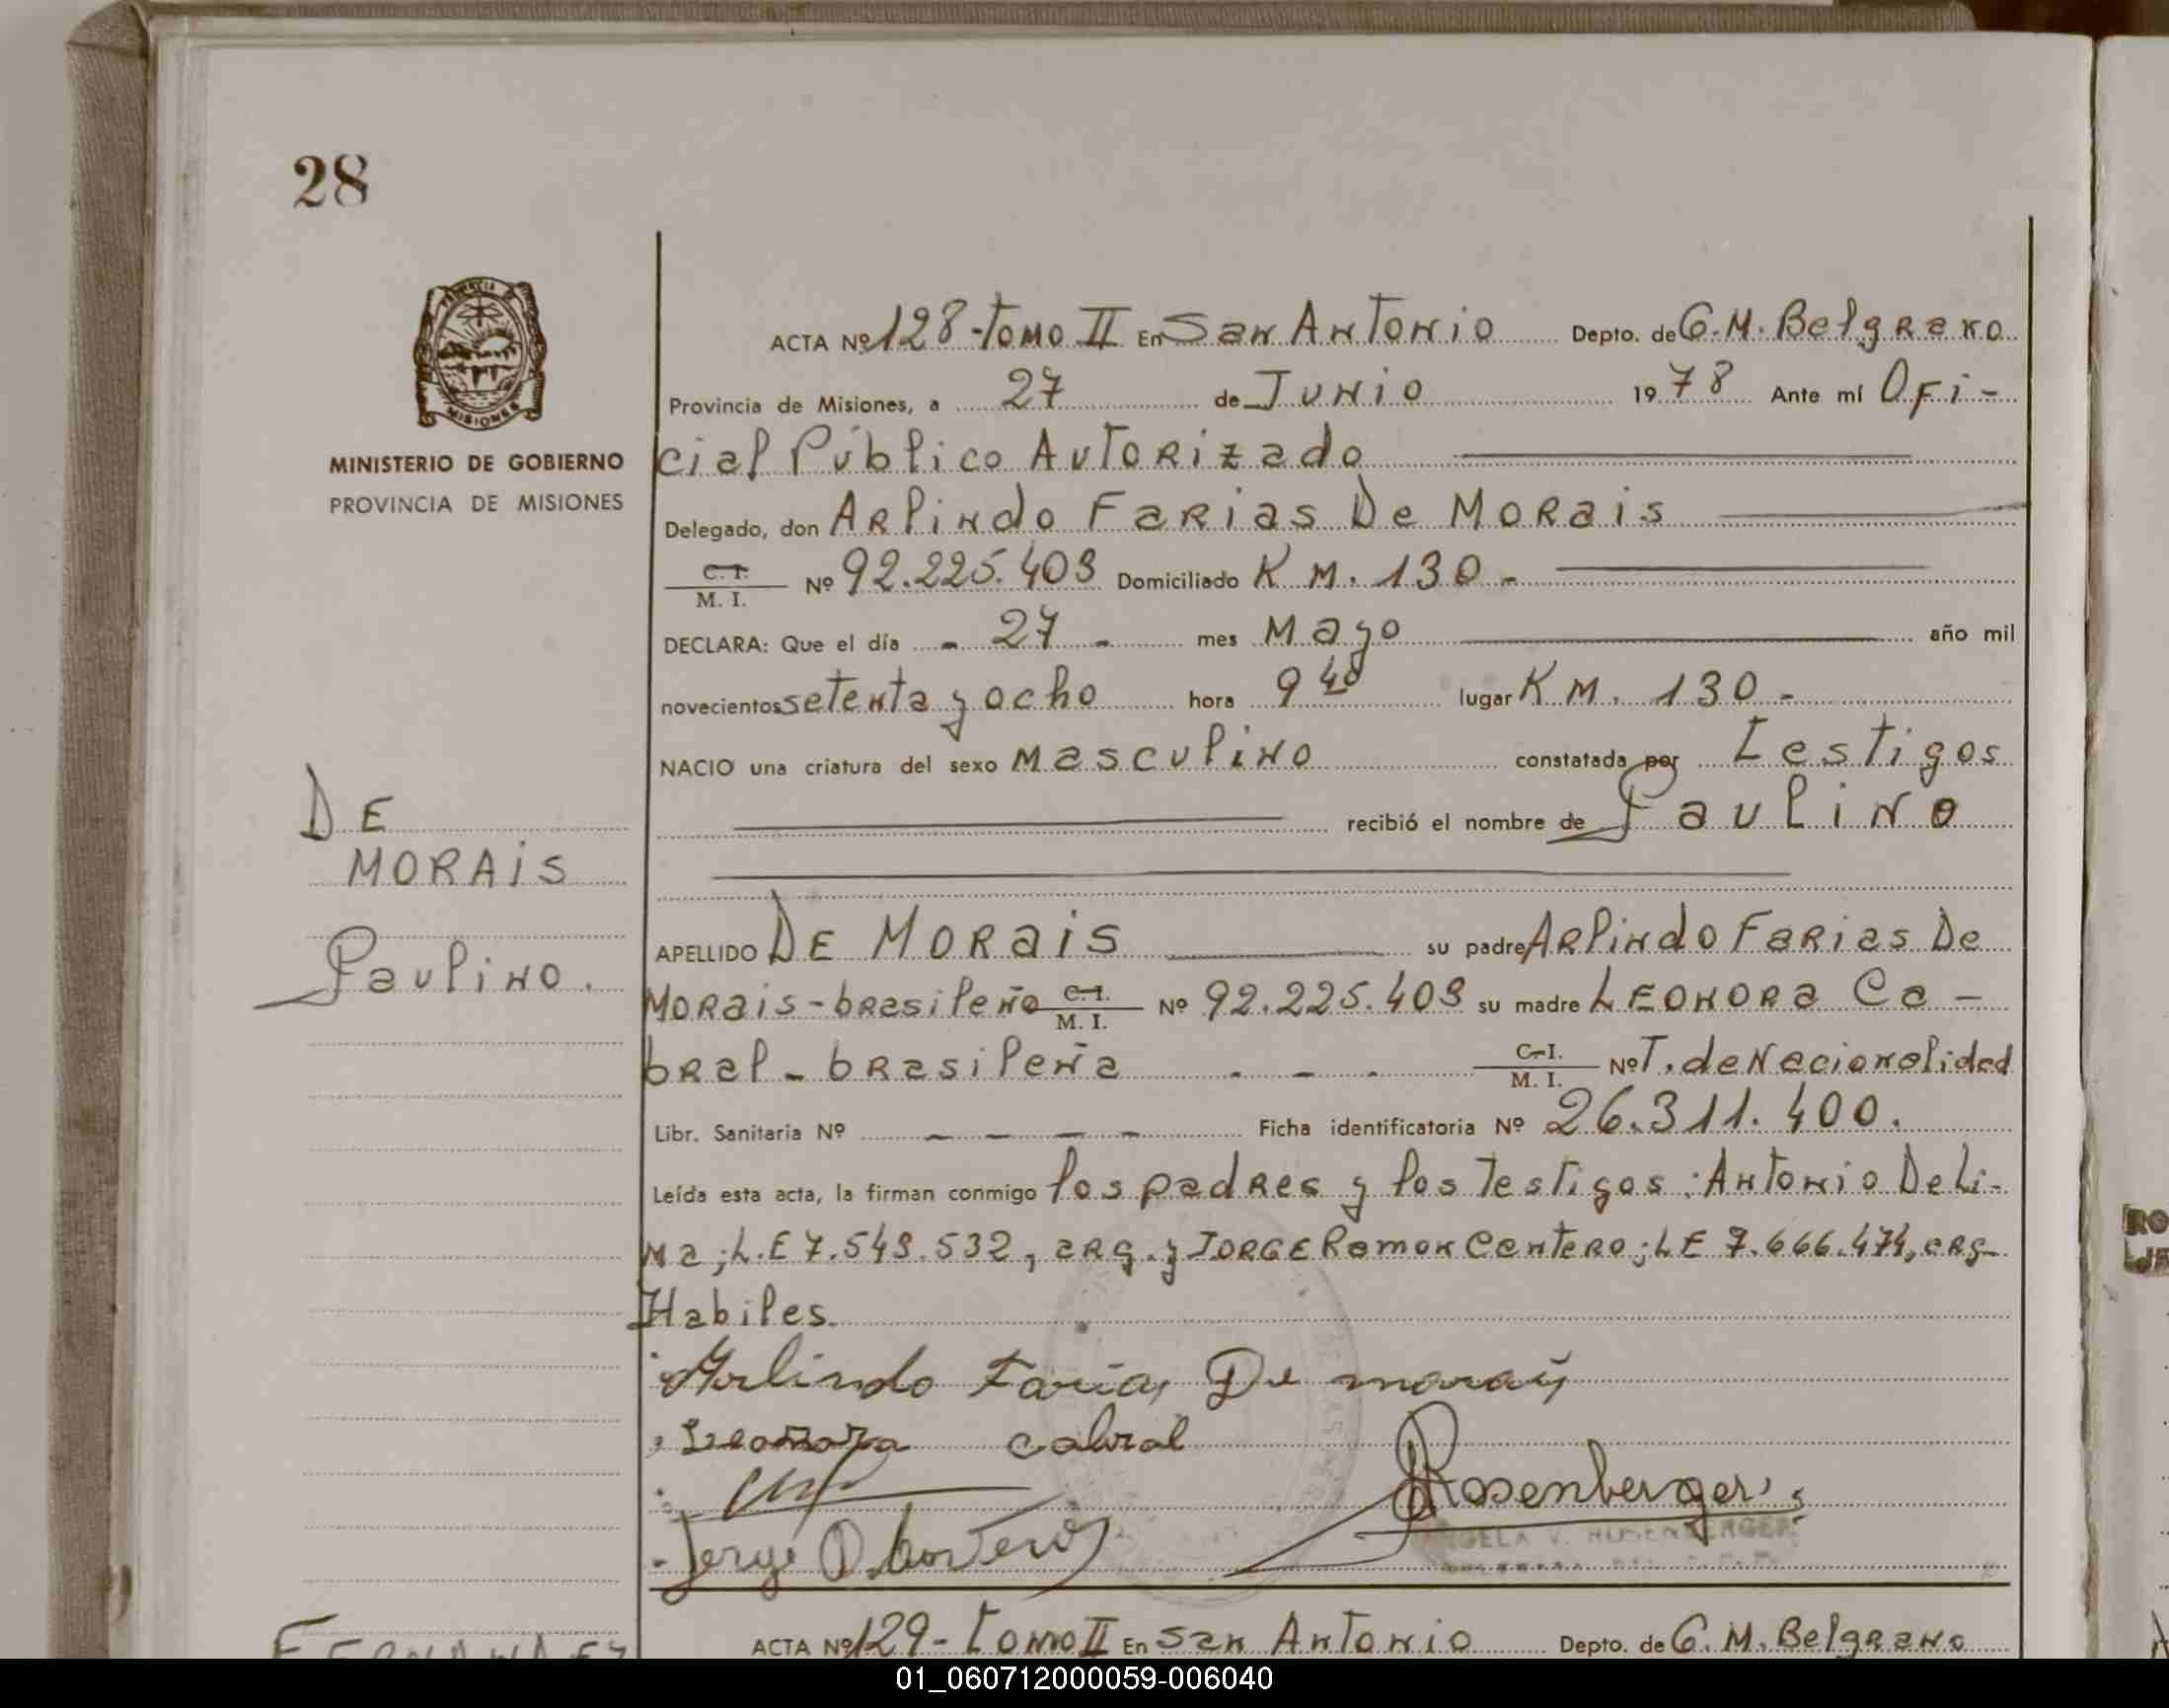 28
ACTA Nº 128-Tomo II En San Antonio Depto. de G.M. Belgrano
Provincia de Misiones, a 27 de Junio 1978 Ante mí Ofi-
MINISTERIO DE GOBIERNO
PROVINCIA DE MISIONES
cial Público Autorizado
Delegado, don Arlindo Farias De Morais
C. I. M. I. Nº 92.225.409 Domiciliado K M. 130 -
DECLARA: Que el día - 27 - mes Mayo año mil
novecientos setenta y ocho hora 9 40 lugar K M. 130 -
NACIO una criatura del sexo masculino constatada por Testigos
recibió el nombre de Paulino
DE
MORAIS
Paulino.
APELLIDO DE MORAIS su padre Arlindo Farias De
Morais - brasileño C. I. M. I. Nº 92.225.409 su madre LEONORA Ca-
bral - brasileña - - - C. I. M. I. Nº T. de Nacionalidad
Libr. Sanitaria Nº - - - - Ficha identificatoria Nº 26.311.400.
Leída esta acta, la firman conmigo los padres y los Testigos: Antonio De Li-
ma; L.E 7.549.532, arg. y JORGE Ramon Centero; L E 7.666.474, arg-
Habiles.
Arlindo Farias De morais
Leonora cabral
Rosenberger
Jorge
ANGELA V. ROSENBERGER
FERNANDEZ
ACTA Nº 129 - Tomo II En San Antonio Depto. de G. M. Belgrano
01_060712000059-006040